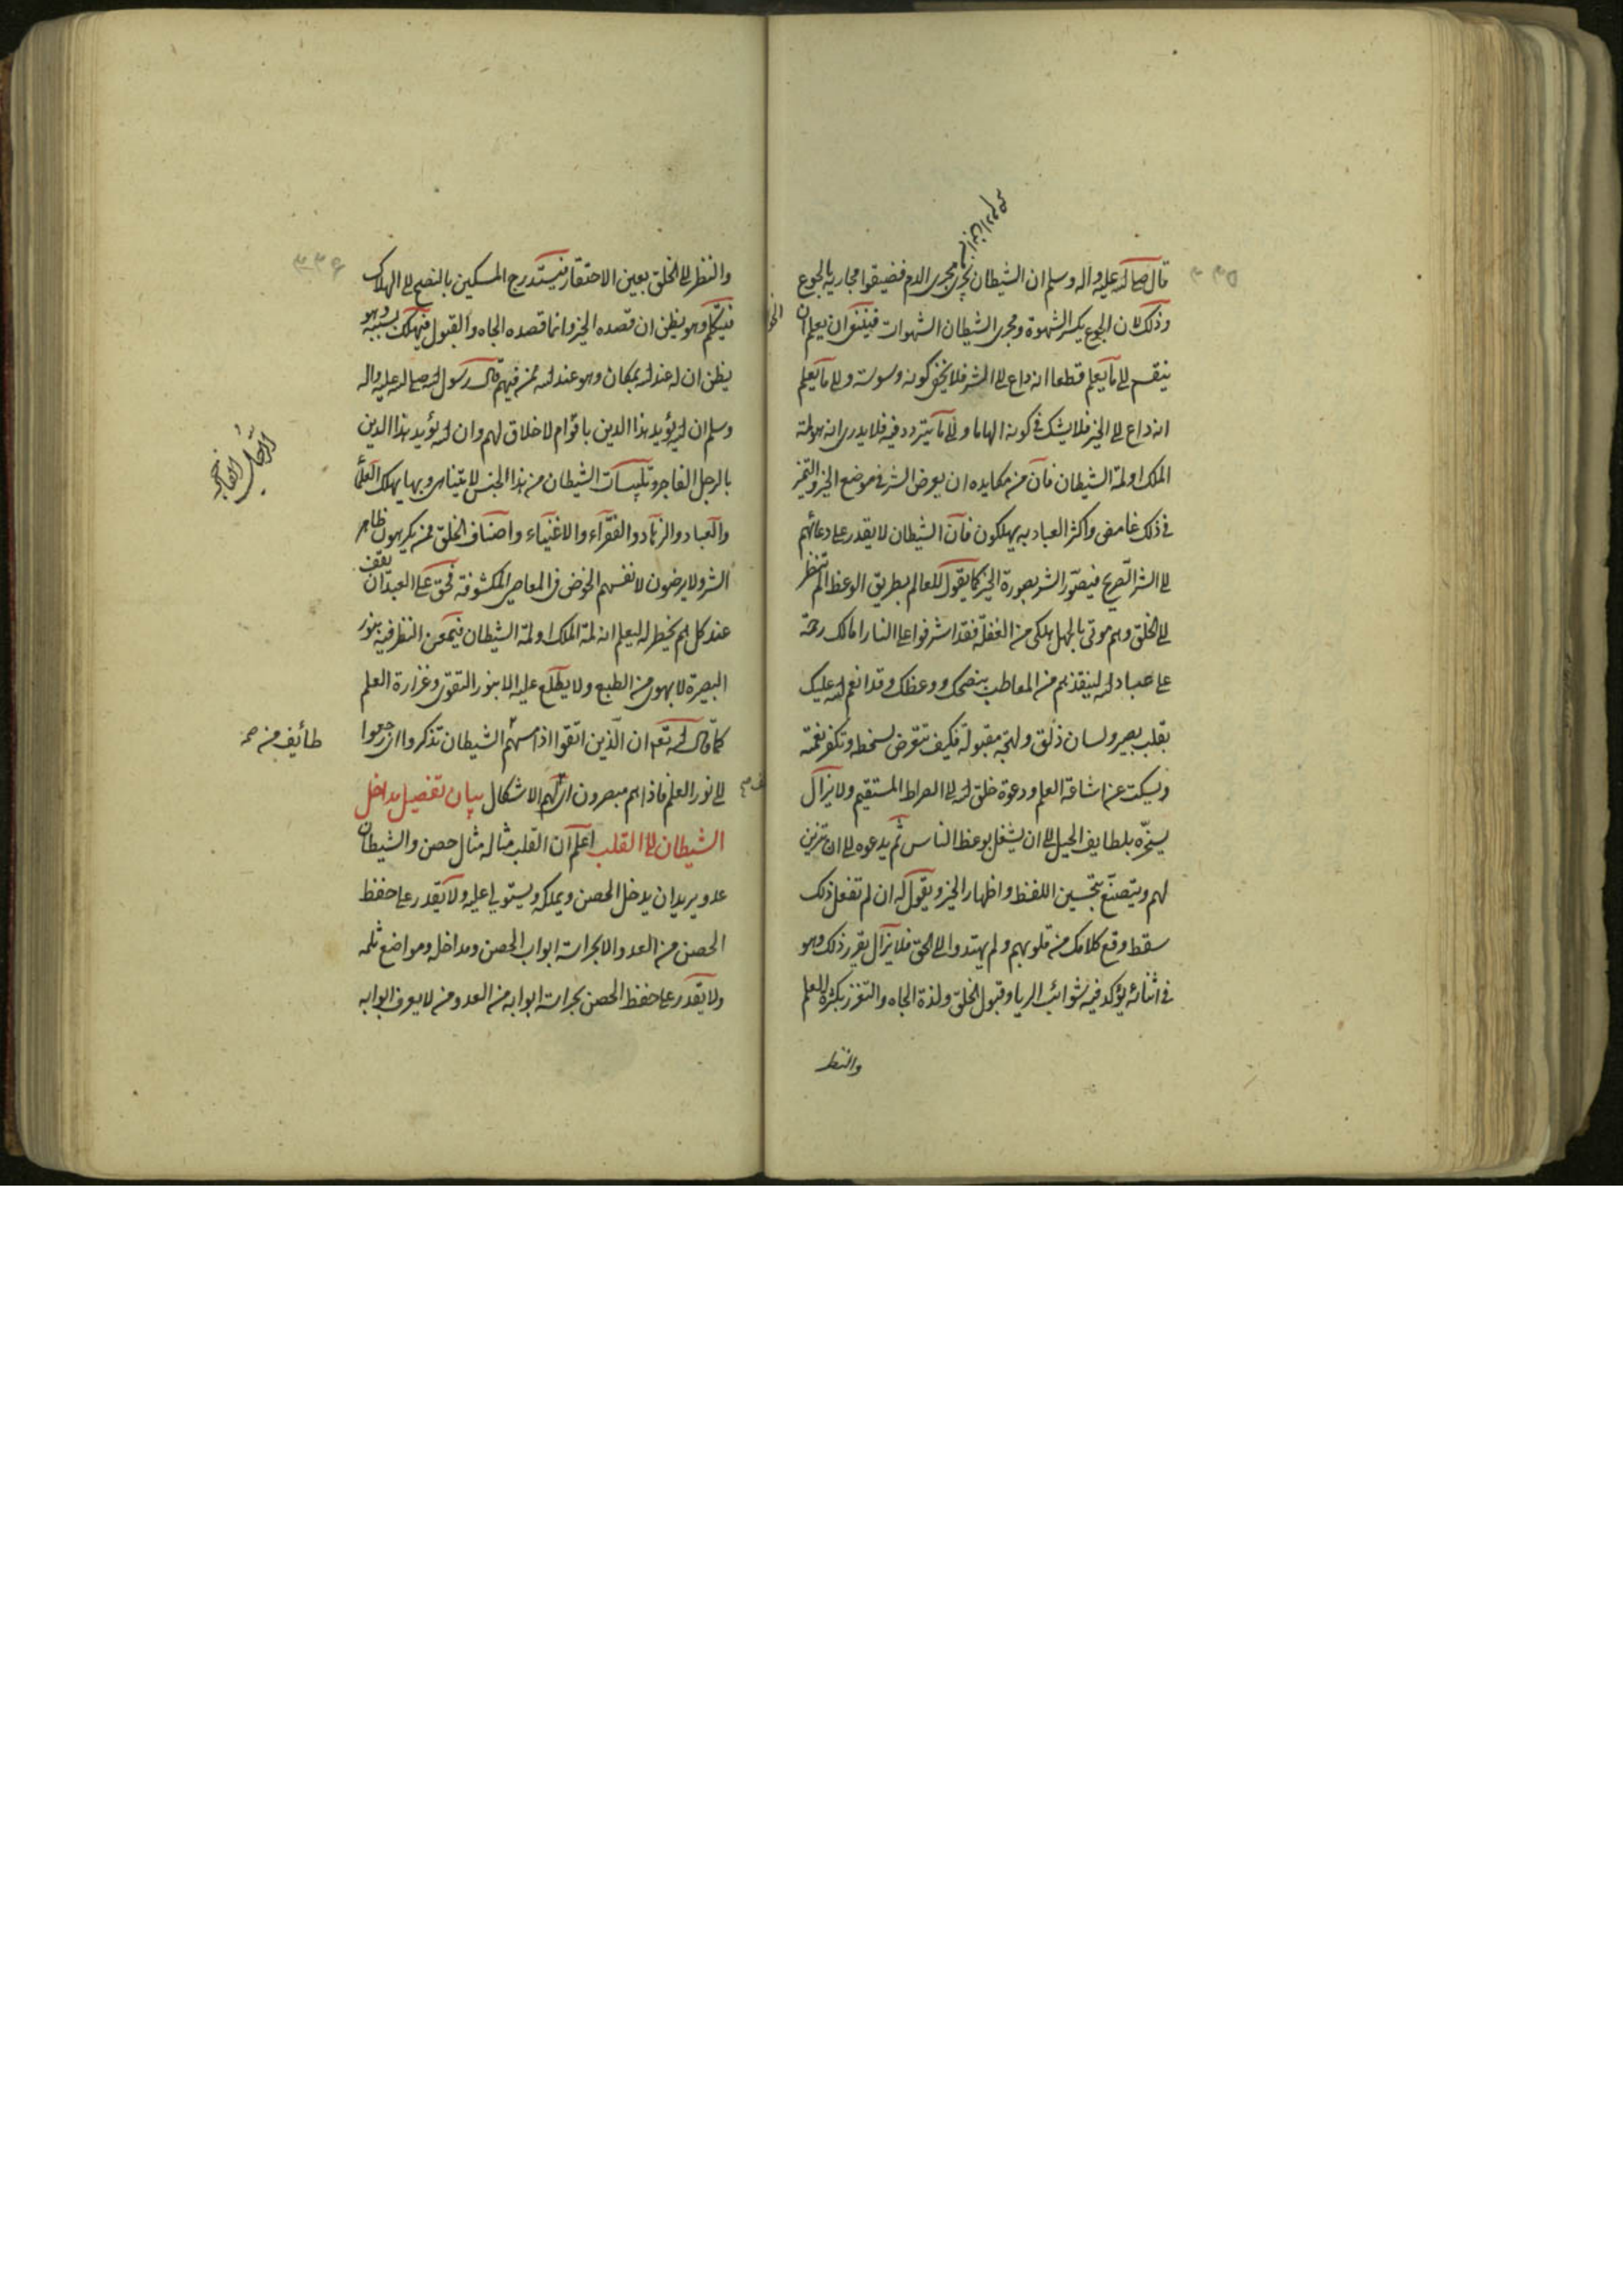 من ابن آدم
٣٣٥
قال صلى الله عليه واله وسلم ان الشيطان يجرى مجرى الدم فضيقوا مجاريه بالجوع
وذلك لان الجوع يكسر الشهوة ومجرى الشيطان الشهوات فينبغى ان يعلم ان
ينقسم الى ما يعلم قطعا انه داع الى الشر فلا يخفى كونه وسوسة والى ما يعلم
انه داع الى الخير فلا يشك فى كونه الهاما والى ما يتردد فيه فلا يدرى انه هو لمة
الملك او لمة الشيطان فان من مكايده ان يعرض الشر فى موضع الخير والتميز
فى ذلك غامض واكثر العباد به يهلكون فان الشيطان لا يقدر على دعائهم
الى الشر الصريح فيصور الشر بصورة الخير كما يقول للعالم بطريق الوعظ الم تنظر
الى الخلق وهم موتى بالجهل هلكى من الغفلة فقد اشرفوا على النار اما لك رحمة
على عباد الله لينقذهم من المعاطب بنصحك ووعظك وقد انعم الله عليك
بقلب بصير ولسان ذلق ولهجة مقبولة فكيف تتعرض لسخطه وتكفر نعمته
ويسكت عن اشاعة العلم ودعوة خلق الله الى الصراط المستقيم ولا يزال
يستجره بلطايف الحيل الى ان يشغل بوعظ الناس ثم يدعوه الى ان تتزين
لهم ويتصنع بتحسين اللفظ واظهار الخير ويقول له ان لم تفعل ذلك
سقط وقع كلامك من قلوبهم ولم يهتدوا الى الحق فلا يزال يقرر ذلك وهو
فى اثنائه يؤكد فيه شوائب الريا وقبول الخلق ولذة الجاه والتعزز بكثرة العلم
والنظر
٣٣٦
والنظر الى الخلق بعين الاحتقار فيستدرج المسكين بالنصح الى الهلاك
فيتكلم وهو يظن ان قصده الخير وانما قصده الجاه والقبول فيهلك بسببه وهو
يظن ان له عند الله بمكان وهو عند الله ممن فيهم قال رسول الله صلى الله عليه واله
وسلم ان الله يؤيد هذا الدين باقوام لا خلاق لهم وان الله يؤيد هذا الدين
بالرجل الفاجر وتلبيسات الشيطان من هذا الجنس لا يتناهى وبها يهلك العلماء
والعباد والزهاد والفقراء والاغنياء واصناف الخلق ممن يكرهون ظاهر
الشر ولا يرضون لانفسهم الخوض فى المعاصى المكشوفة فحق على العبد ان يقف
عند كل هم يخطر له ليعلم انه لمة الملك او لمة الشيطان فيمعن النظر فيه بنور
البصيرة لا بهوى من الطبع ولا يطلع عليه الا بنور التقوى وغزارة العلم
كما قال الله تعم ان الذين اتقوا اذا مسهم الشيطان تذكروا اى رجعوا
الى نور العلم فاذا هم مبصرون اى لهم الاشكال بيان تفصيل مداخل
الشيطان الى القلب اعلم ان القلب مثاله مثال حصن والشيطان
عدو يريد ان يدخل الحصن ويملكه ويستولى عليه ولا يقدر على حفظ
الحصن من العدو الا بحراسة ابواب الحصن ومداخله ومواضع ثلمه
ولا يقدر على حفظ الحصن بحراسة ابوابه من العدو من لا يعرف ابوابه
الرجل الفاجر
طائف من